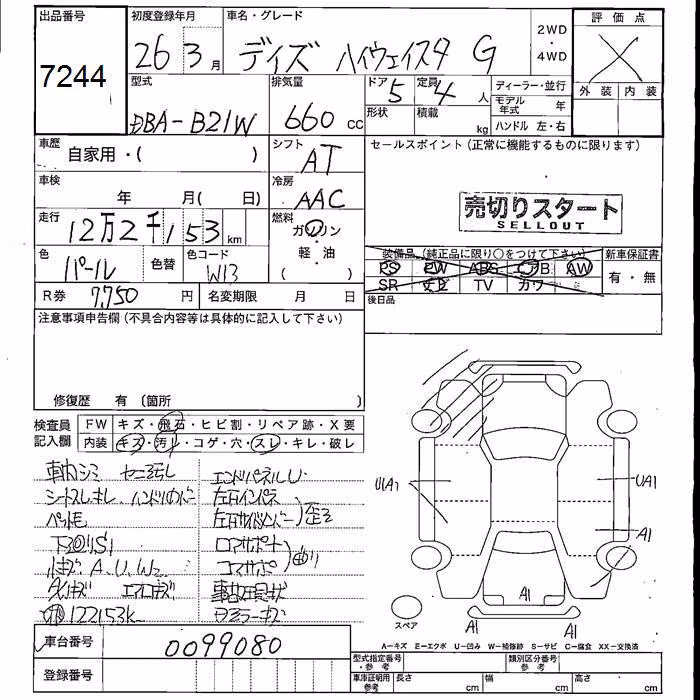 出品番号
7244
初度登録年月
26 3月
車名・グレード
デイズ ハイウェイスタ G
2WD
・
4WD
評価点
X
外装 内装
型式
DBA-B21W
排気量
660 cc
ドア 5
形状
定員 4 人
積載 kg
ディーラー・並行
モデル年式 年
ハンドル 左・右
車歴
自家用・( )
シフト
AT
セールスポイント(正常に機能するものに限ります)
売切りスタート
SELLOUT
車検
年 月( 日)
冷房
AAC
走行
12万2千153km
燃料
ガソリン
・
軽・油
( )
色
パール
色替
色コード
W13
装備品(純正品に限り○をつけて下さい)
PS PW ABS エアB AW
SR TV カワ
新車保証書
有・無
R券 7,750 円
名変期限 月 日
後日品
注意事項申告欄(不具合内容等は具体的に記入して下さい)
修復歴 有(箇所 )
検査員記入欄
FW キズ・飛石・ヒビ割・リペア跡・X要
内装 キズ・汚レ・コゲ・穴・スレ・キレ・破レ
車内シミ
エンドパネルU
シートスレキレ
左右インパネ
ペット毛
歪ミ
コアサポート
曲り
A.U.W2
122153k
U1A1
UA1
A1
A1
A1
A1
スペア
A-キズ E-エクボ U-凹み W-補修跡 S-サビ C-腐食 XX-交換済
車台番号
0099080
登録番号
型式指定番号・参考
類別区分番号・参考
車庫証明用参考
長さ cm
幅 cm
高さ cm